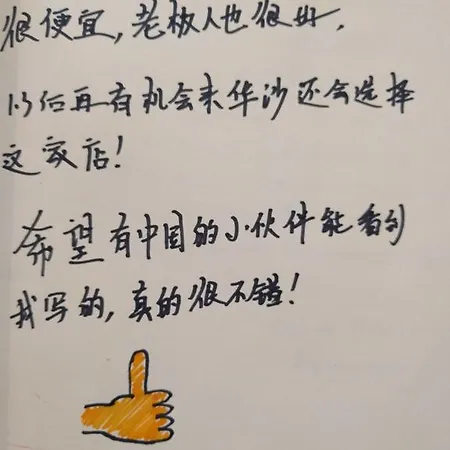 很便宜，老板人也很好，
以后再有机会来华沙还会选择
这家店！
希望有中国的小伙伴能看到
我写的，真的很不错！